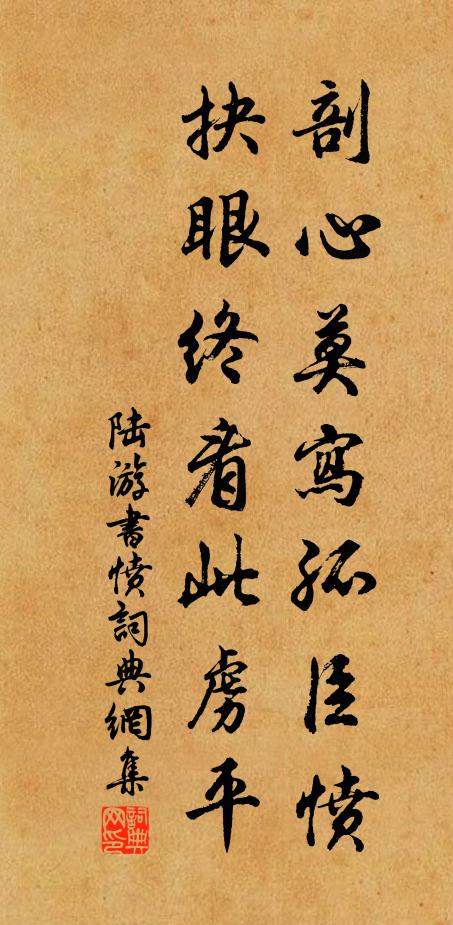 剖心莫寫孤臣憤
抉眼終看此虜平
陆游書憤詞典網集
詞典网印